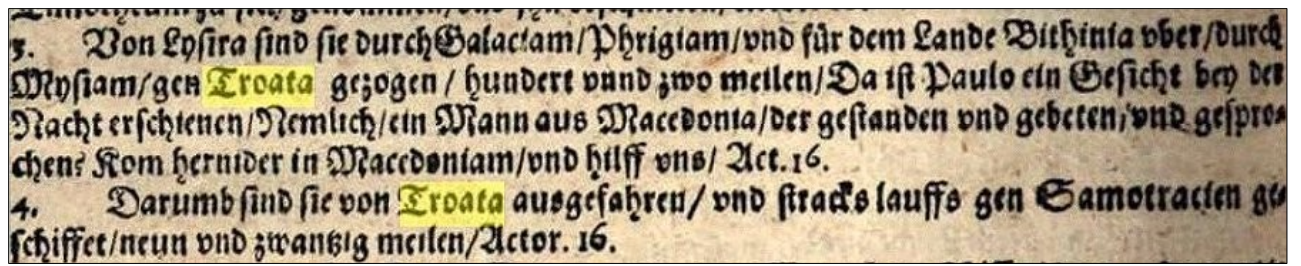 3. Von Lysira sind sie durch Galaciam/Phrigiam/vnd für dem Lande Bithinia vber/durch
Mysiam/gen Troata gezogen / hundert vnnd zwo meilen/Da ist Paulo ein Gesicht bey der
Nacht erschienen/Nemlich/ein Mann aus Macedonia/der gestanden vnd gebeten/vnd gespro-
chen: Kom hernider in Macedoniam/vnd hilff vns/ Act. 16.
4. Darumb sind sie von Troata ausgefahren/ vnd stracks lauffs gen Samotracien ge-
schiffet/neun vnd zwantzig meilen/Actor. 16.